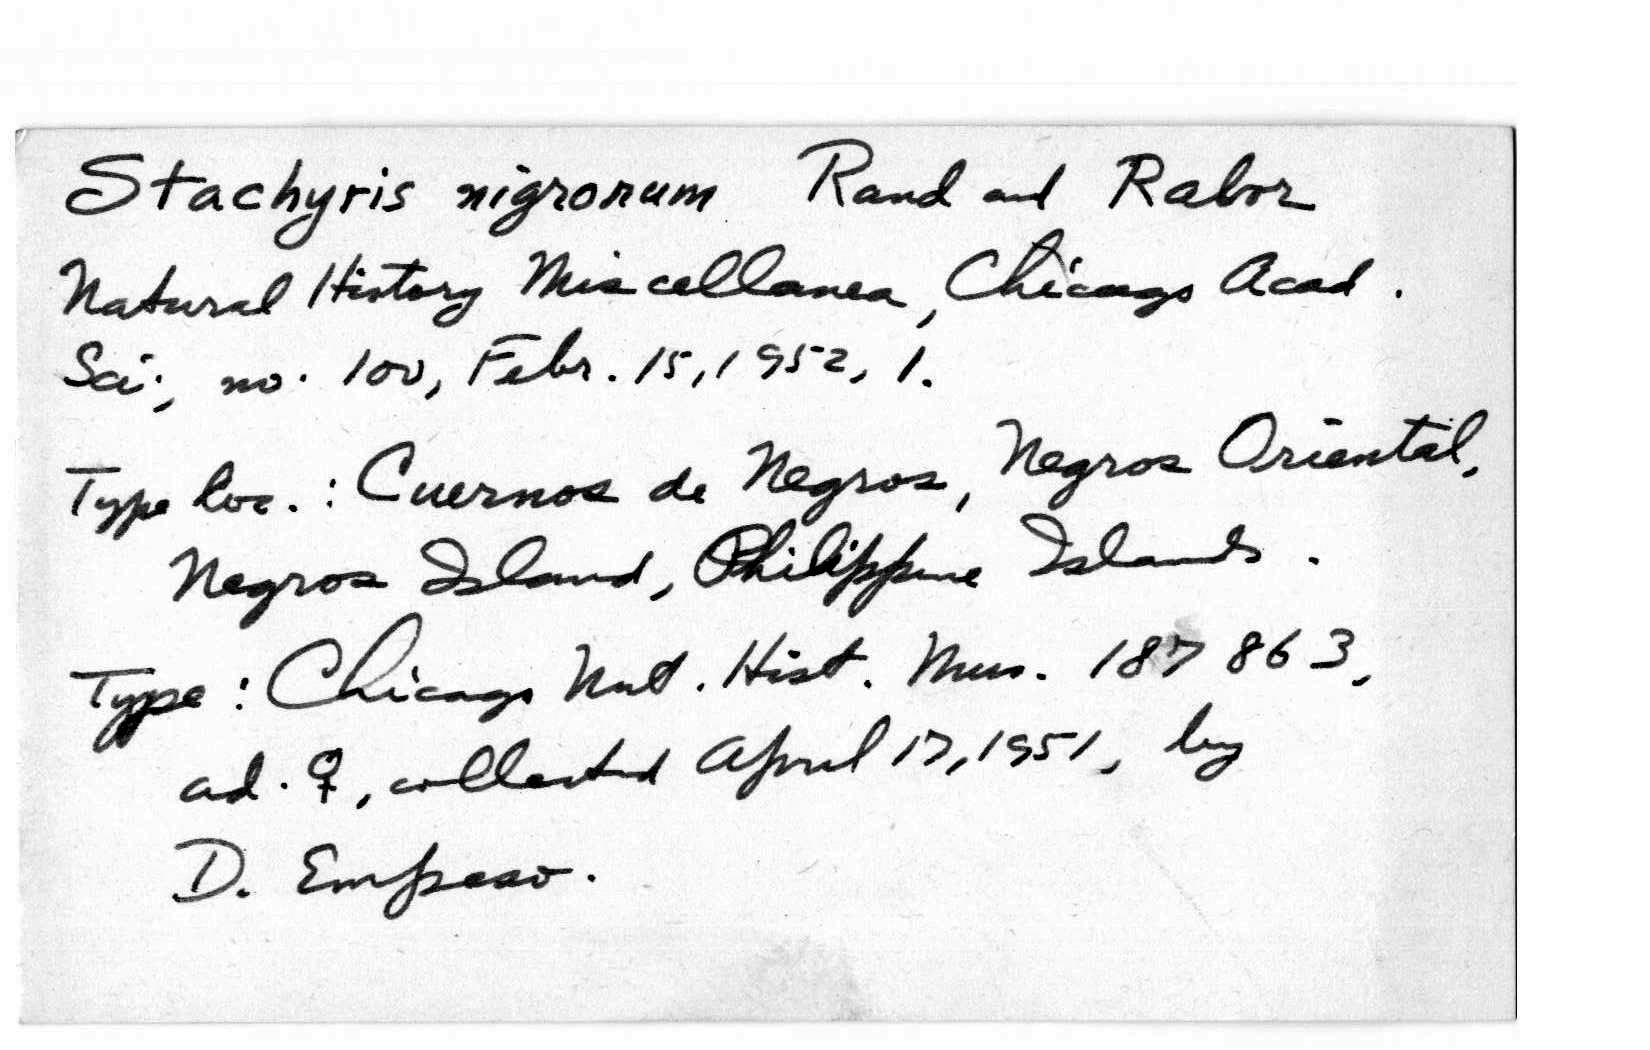 Stachyris nigrorum Rand and Rabor
Natural History Miscellanea, Chicago Acad.
Sci., no. 100, Febr. 15, 1952, 1.
Type loc.: Cuernos de Negros, Negros Oriental,
Negros Island, Philippine Islands.
Type: Chicago Nat. Hist. Mus. 187863,
ad. ♀, collected April 17, 1951, by
D. Empeso.